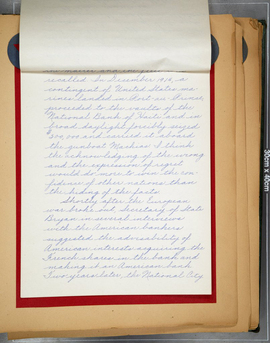 recalled. In December 1914, a
contingent of United States ma-
rines landed in Port-au-Prince,
proceeded to the vaults of the
National Bank of Haiti and in
broad daylight forcibly seized
$500,000 and carried it aboard
the gunboat Machias. I think
the acknowledging of the wrong
and the expression of regret
would do more to win the con-
fidence of other nations than
the hiding of the facts.
Shortly after the European
war broke out, Secretary of State
Bryan in several interviews
with the American bankers
suggested the advisability of
American interests acquiring the
French shares in the bank and
making it an American bank.
Two years later, the National City
30cm x 40cm